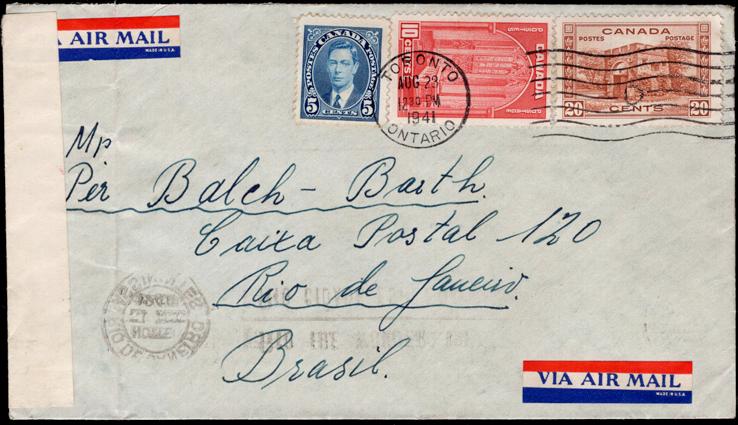 AIR MAIL
MADE IN U.S.A.
POSTES CANADA POSTAGE
5 CENTS 5
10 CENTS
CANADA
CANADA
POSTES POSTAGE
20 CENTS 20
TORONTO
AUG 29
12 30 PM
1941
ONTARIO
Mr
Per Balch-Barth.
Caixa Postal 120
Rio de Janeiro.
Brasil.
RIO DE JANEIRO
VIA AIR MAIL
MADE IN U.S.A.